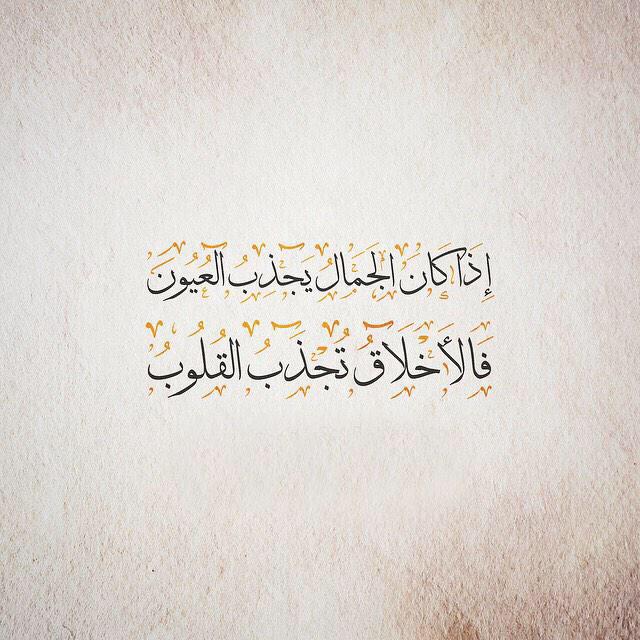 إِذَا كَانَ الجَمَالُ يَجذِبُ العُيُونَ
فَالأَخلَاقُ تُجذَبُ القُلُوبُ